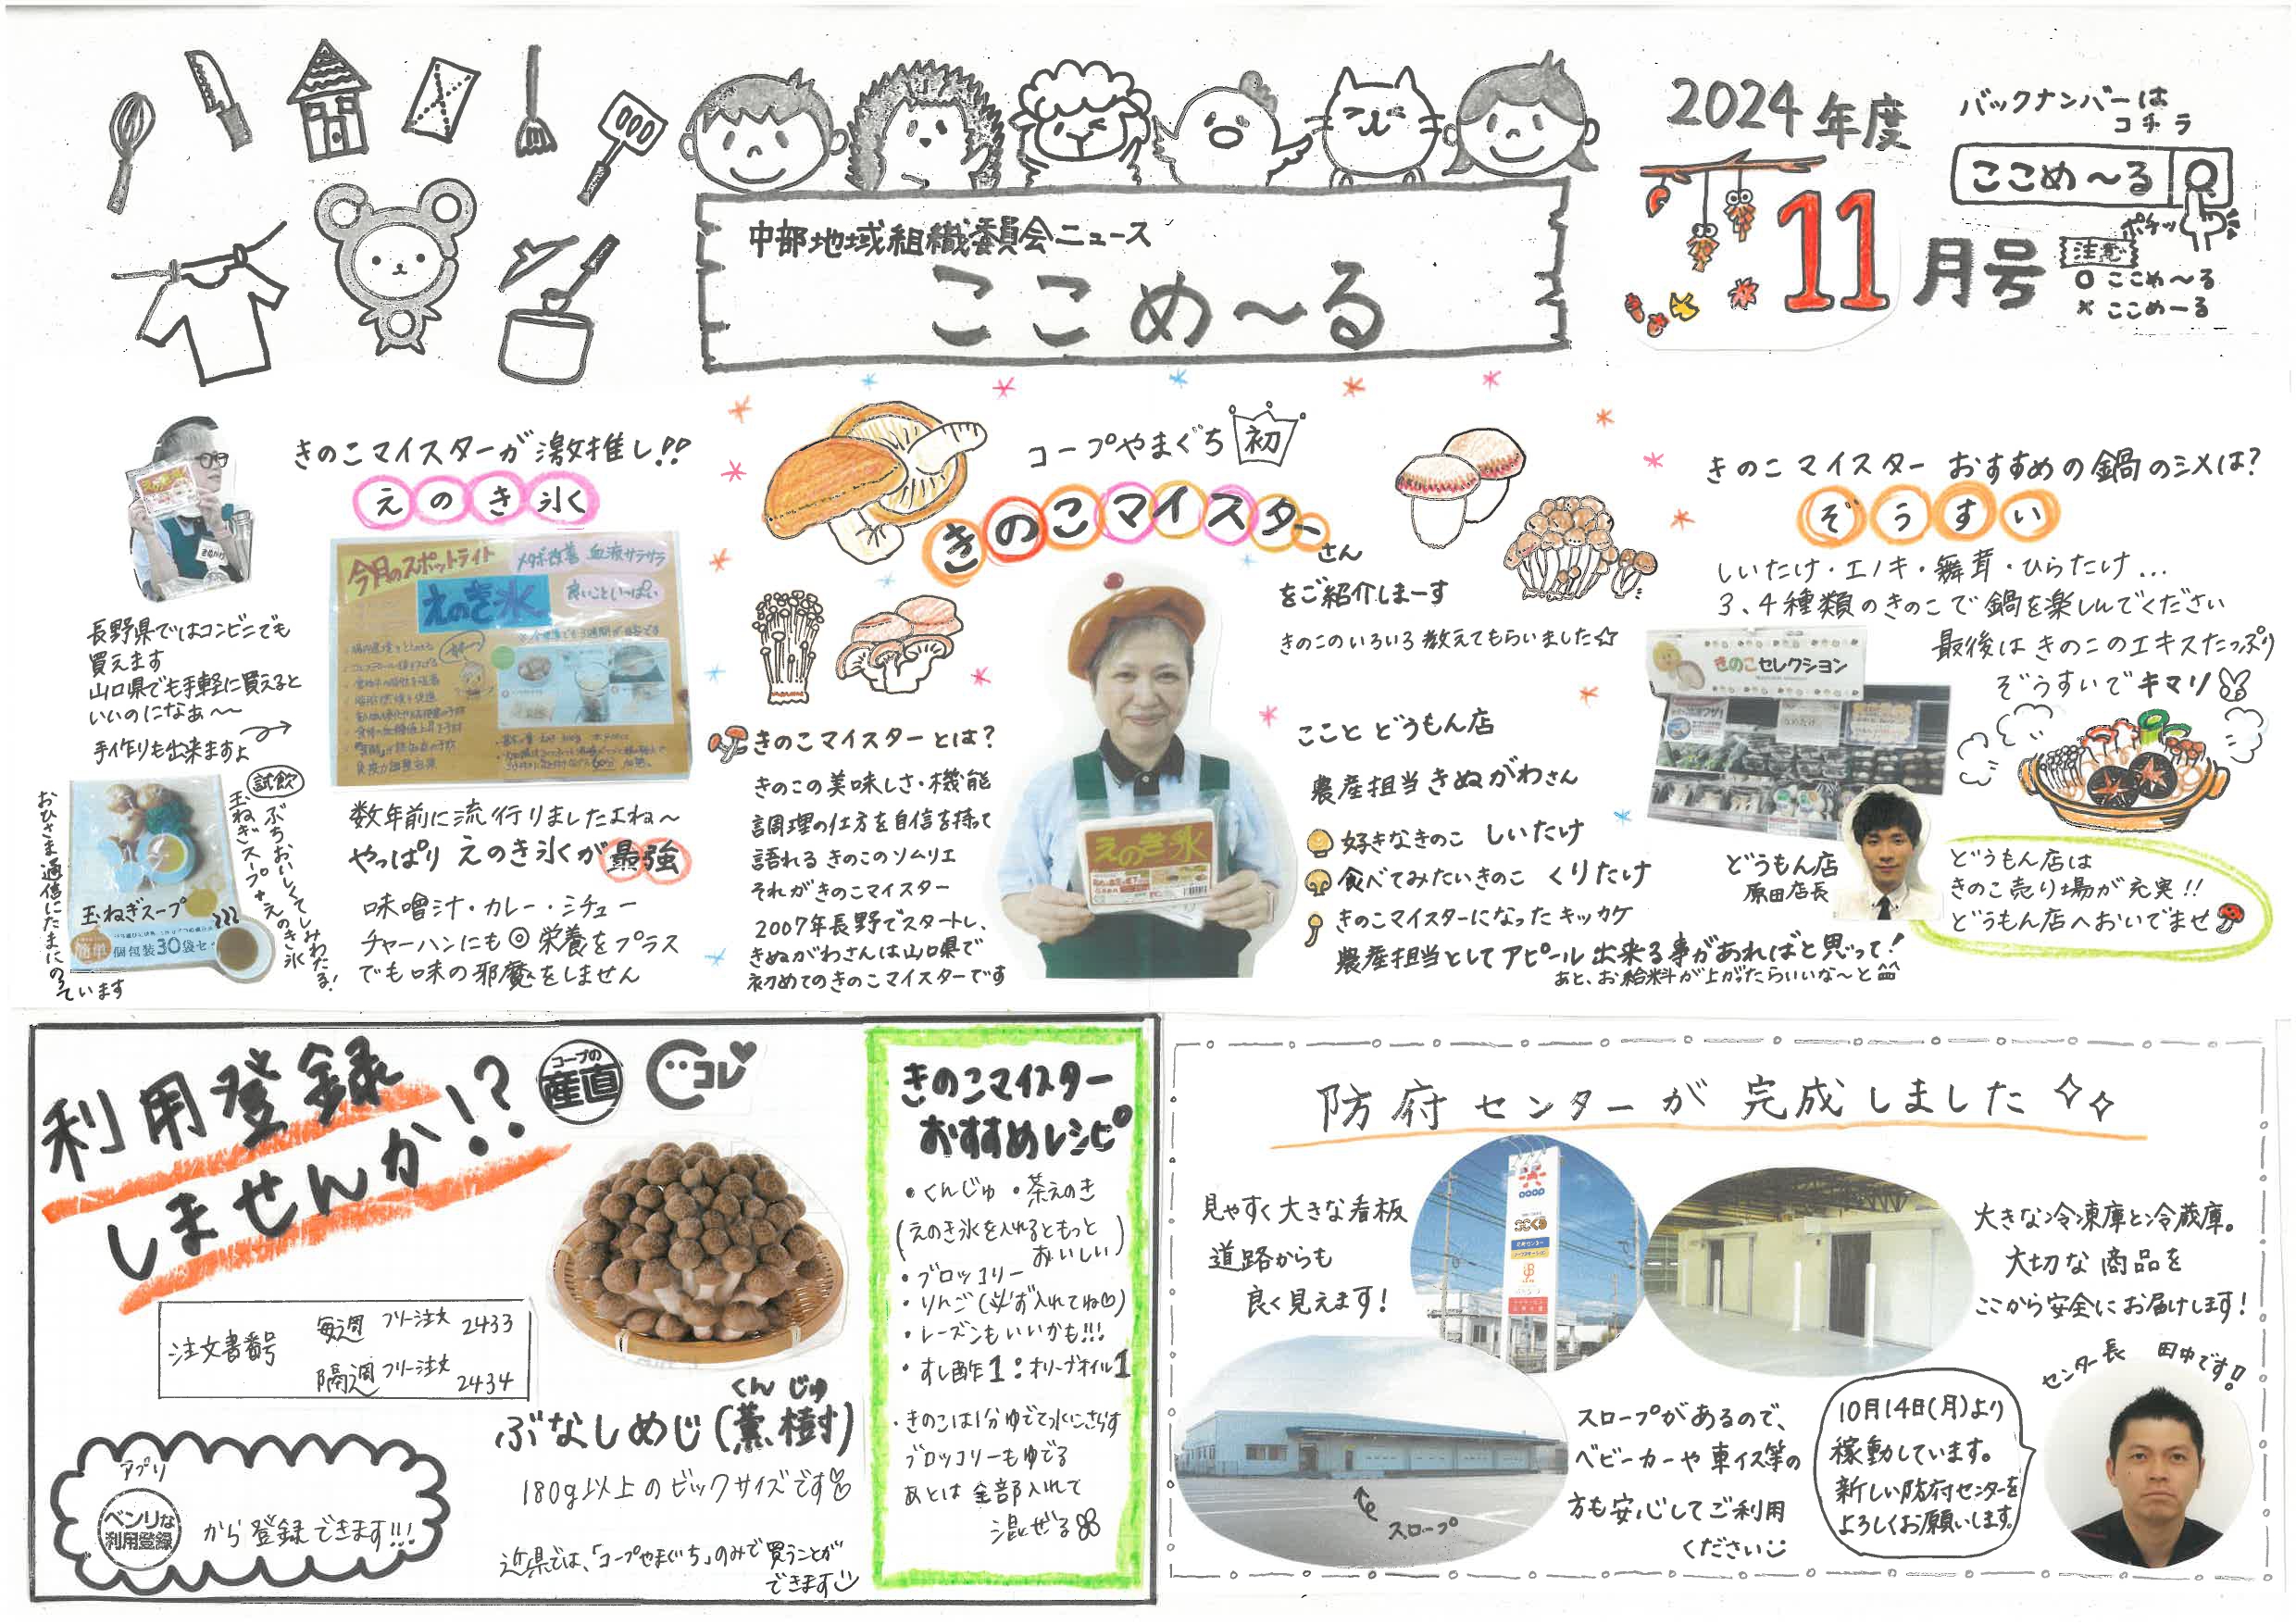 2024年度
11月号
バックナンバーは
コチラ
ここめ～る
ポチッ
注意
○ ここめ～る
× ここめーる
中部地域組織委員会ニュース
ここめ～る
きのこマイスターが激推し!!
えのき氷
長野県ではコンビニでも
買えます
山口県でも手軽に買えると
いいのになぁ～～
手作りも出来ますよ
今月のスポットライト
メタボ改善 血液サラサラ
えのき氷
良いこといっぱい
試飲
ぶちおいしくてしみわたる!
玉ねぎスープ+えのき氷
おひさま通信にたまにのっています
玉ねぎスープ
簡単
個包装30袋セ
数年前に流行りましたよね～
やっぱり えのき氷が最強
味噌汁・カレー・シチュー
チャーハンにも◎ 栄養をプラス
でも味の邪魔をしません
コープやまぐち 初
きのこマイスターさん
をご紹介しまーす
きのこのいろいろ教えてもらいました☆
きのこマイスターとは?
きのこの美味しさ・機能
調理の仕方を自信を持って
語れる きのこのソムリエ
それがきのこマイスター
2007年長野でスタートし、
きぬがわさんは山口県で
初めてのきのこマイスターです
えのき氷
こことどうもん店
農産担当 きぬがわさん
好きなきのこ しいたけ
食べてみたいきのこ くりたけ
きのこマイスターになったキッカケ
農産担当としてアピール出来る事があればと思って!
あと、お給料が上がったらいいな～と
きのこマイスター おすすめの鍋のシメは?
ぞうすい
しいたけ・エノキ・舞茸・ひらたけ...
3、4種類のきのこで鍋を楽しんでください
最後は きのこのエキスたっぷり
ぞうすいでキマリ
きのこセレクション
どうもん店
原田店長
どうもん店は
きのこ売り場が充実!!
どうもん店へおいでませ
利用登録
しませんか!?
コープの
産直
コレ
注文書番号
毎週 フリー注文 2433
隔週 フリー注文 2434
アプリ
ベンリな
利用登録
から登録できます!!!
くんじゅ
ぶなしめじ(薫樹)
180g以上のビックサイズです
近県では、「コープやまぐち」のみで買うことが
できます
きのこマイスター
おすすめレシピ
・くんじゅ ・茶えのき
(えのき氷を入れるともっと
おいしい)
・ブロッコリー
・りんご(必ず入れてね♡)
・レーズンもいいかも!!!
・すし酢1:オリーブオイル1
・きのこは1分ゆでて水にさらす
ブロッコリーもゆでる
あとは全部入れて
混ぜる
防府センターが完成しました
見やすく大きな看板
道路からも
良く見えます!
ここくる
大きな冷凍庫と冷蔵庫。
大切な商品を
ここから安全にお届けします!
スロープ
スロープがあるので、
ベビーカーや車イス等の
方も安心してご利用
ください
センター長 田中です!
10月14日(月)より
稼動しています。
新しい防府センターを
よろしくお願いします。